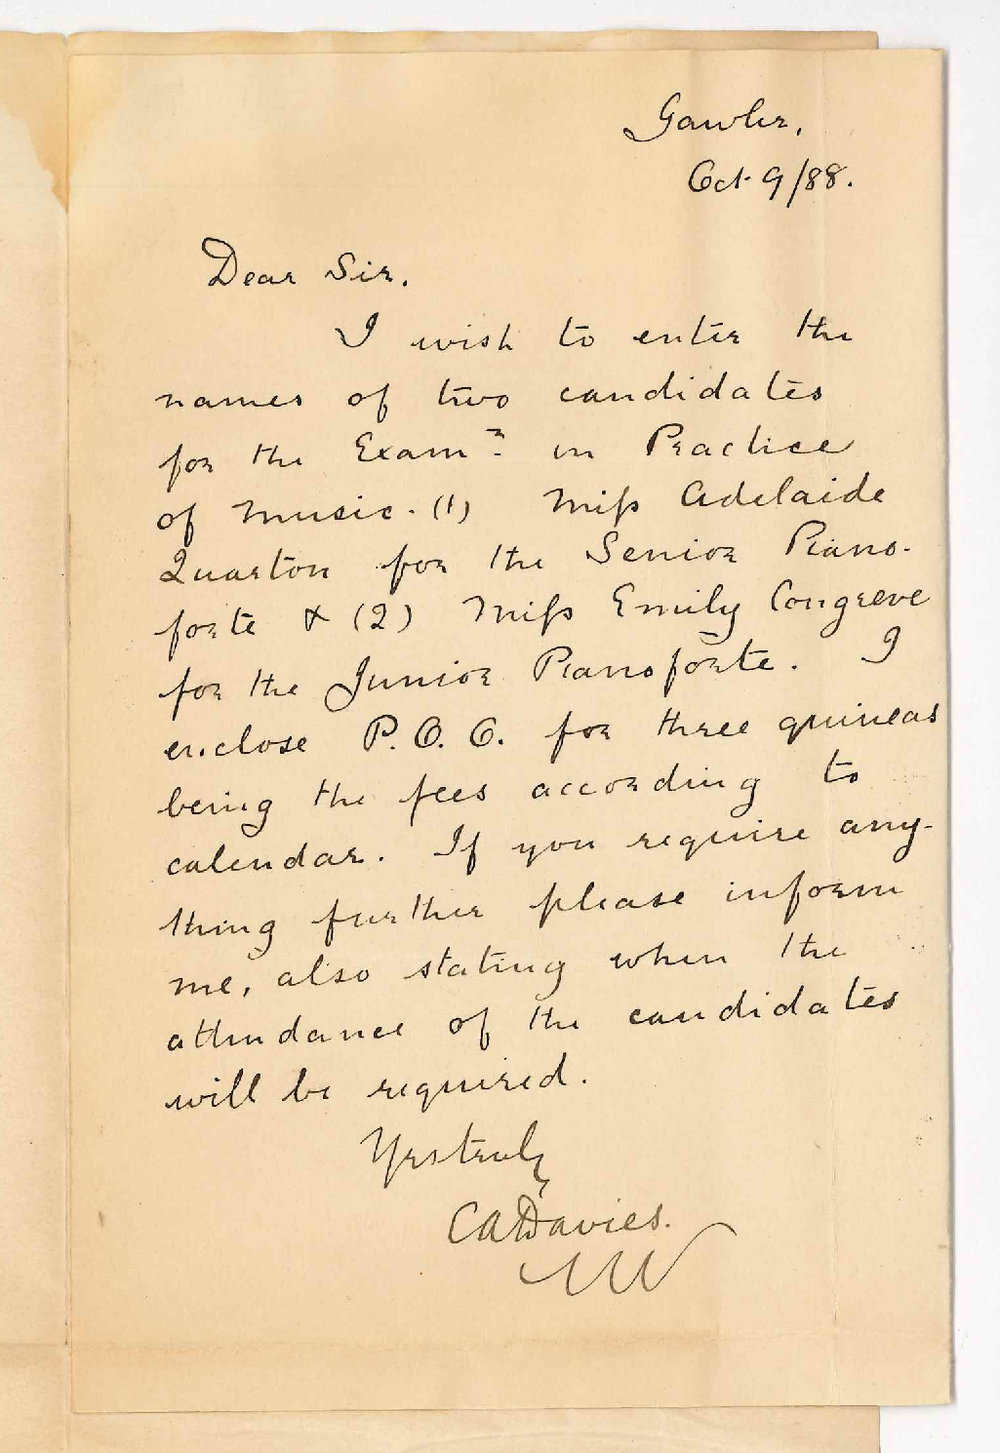 Gawler,
Oct. 9/88.
Dear Sir.
I wish to enter the
names of two candidates
for the Examn. in Practice
of Music. (1) Miss Adelaide
Quarton for the Senior Piano-
forte & (2) Miss Emily Congreve
for the Junior Pianoforte. I
enclose P.O.O. for three guineas
being the fees according to
calendar. If you require any-
thing further please inform
me, also stating when the
attendance of the candidates
will be required.
Yrs truly
CADavies.